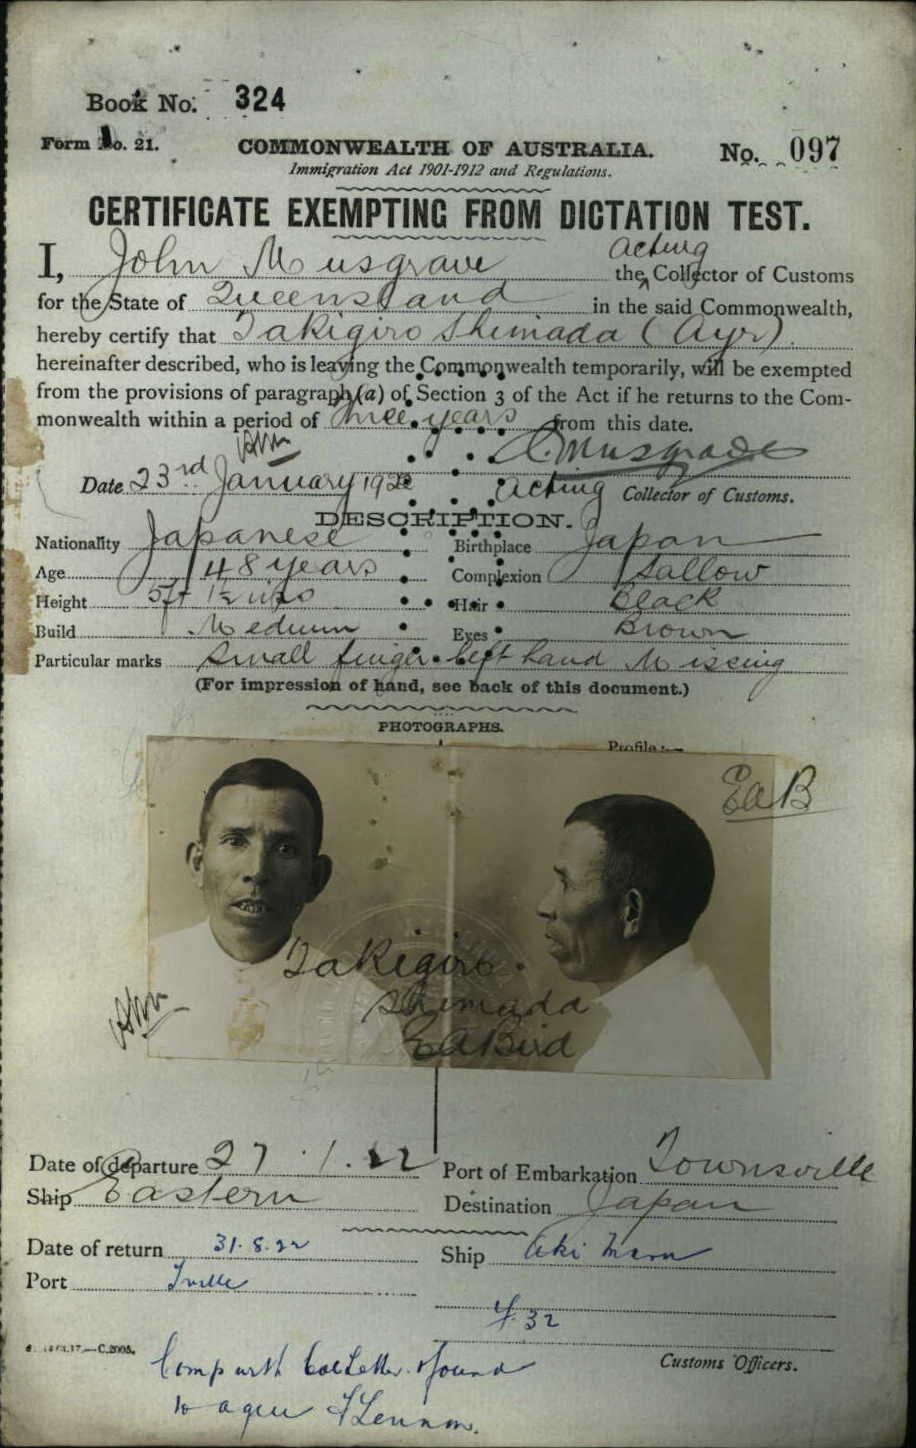 Book No. 324
Form No. 21.
COMMONWEALTH OF AUSTRALIA.
No. 097
Immigration Act 1901-1912 and Regulations.
CERTIFICATE EXEMPTING FROM DICTATION TEST.
Acting
I, John Musgrave the Collector of Customs
for the State of Queensland in the said Commonwealth,
hereby certify that Takigiro Shimada (Ayr)
hereinafter described, who is leaving the Commonwealth temporarily, will be exempted
from the provisions of paragraph (a) of Section 3 of the Act if he returns to the Com-
monwealth within a period of three years from this date.
Musgrave
Date 23rd January 1922 Acting Collector of Customs.
DESCRIPTION.
Nationality Japanese Birthplace Japan
Age 48 years Complexion Sallow
Height 5ft 1½ ins Hair Black
Build Medium Eyes Brown
Particular marks Small finger left hand Missing
(For impression of hand, see back of this document.)
PHOTOGRAPHS.
Profile:—
EAB
Takigiro
Shimada
EA Bird
Date of departure 27.1.22 Port of Embarkation Townsville
Ship Eastern Destination Japan
Date of return 31.8.22 Ship Aki Maru
Port Tville
32
C.2005.
Customs Officers.
Comp with Col Letter & found
to agree Lennon.